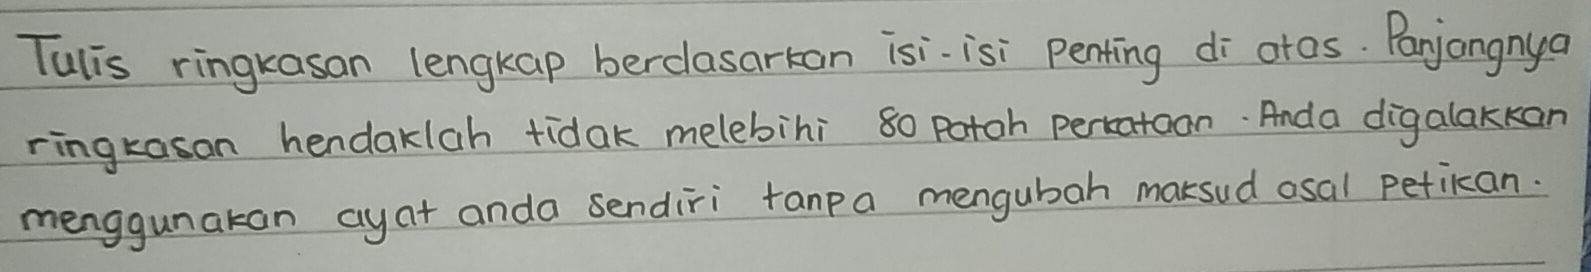 Tulis ringkasan lengkap berdasarkan isi-isi penting di atas. Panjangnya
ringkasan hendaklah tidak melebihi 80 patah perkataan. Anda digalakkan
menggunakan ayat anda sendiri tanpa mengubah maksud asal petikan.